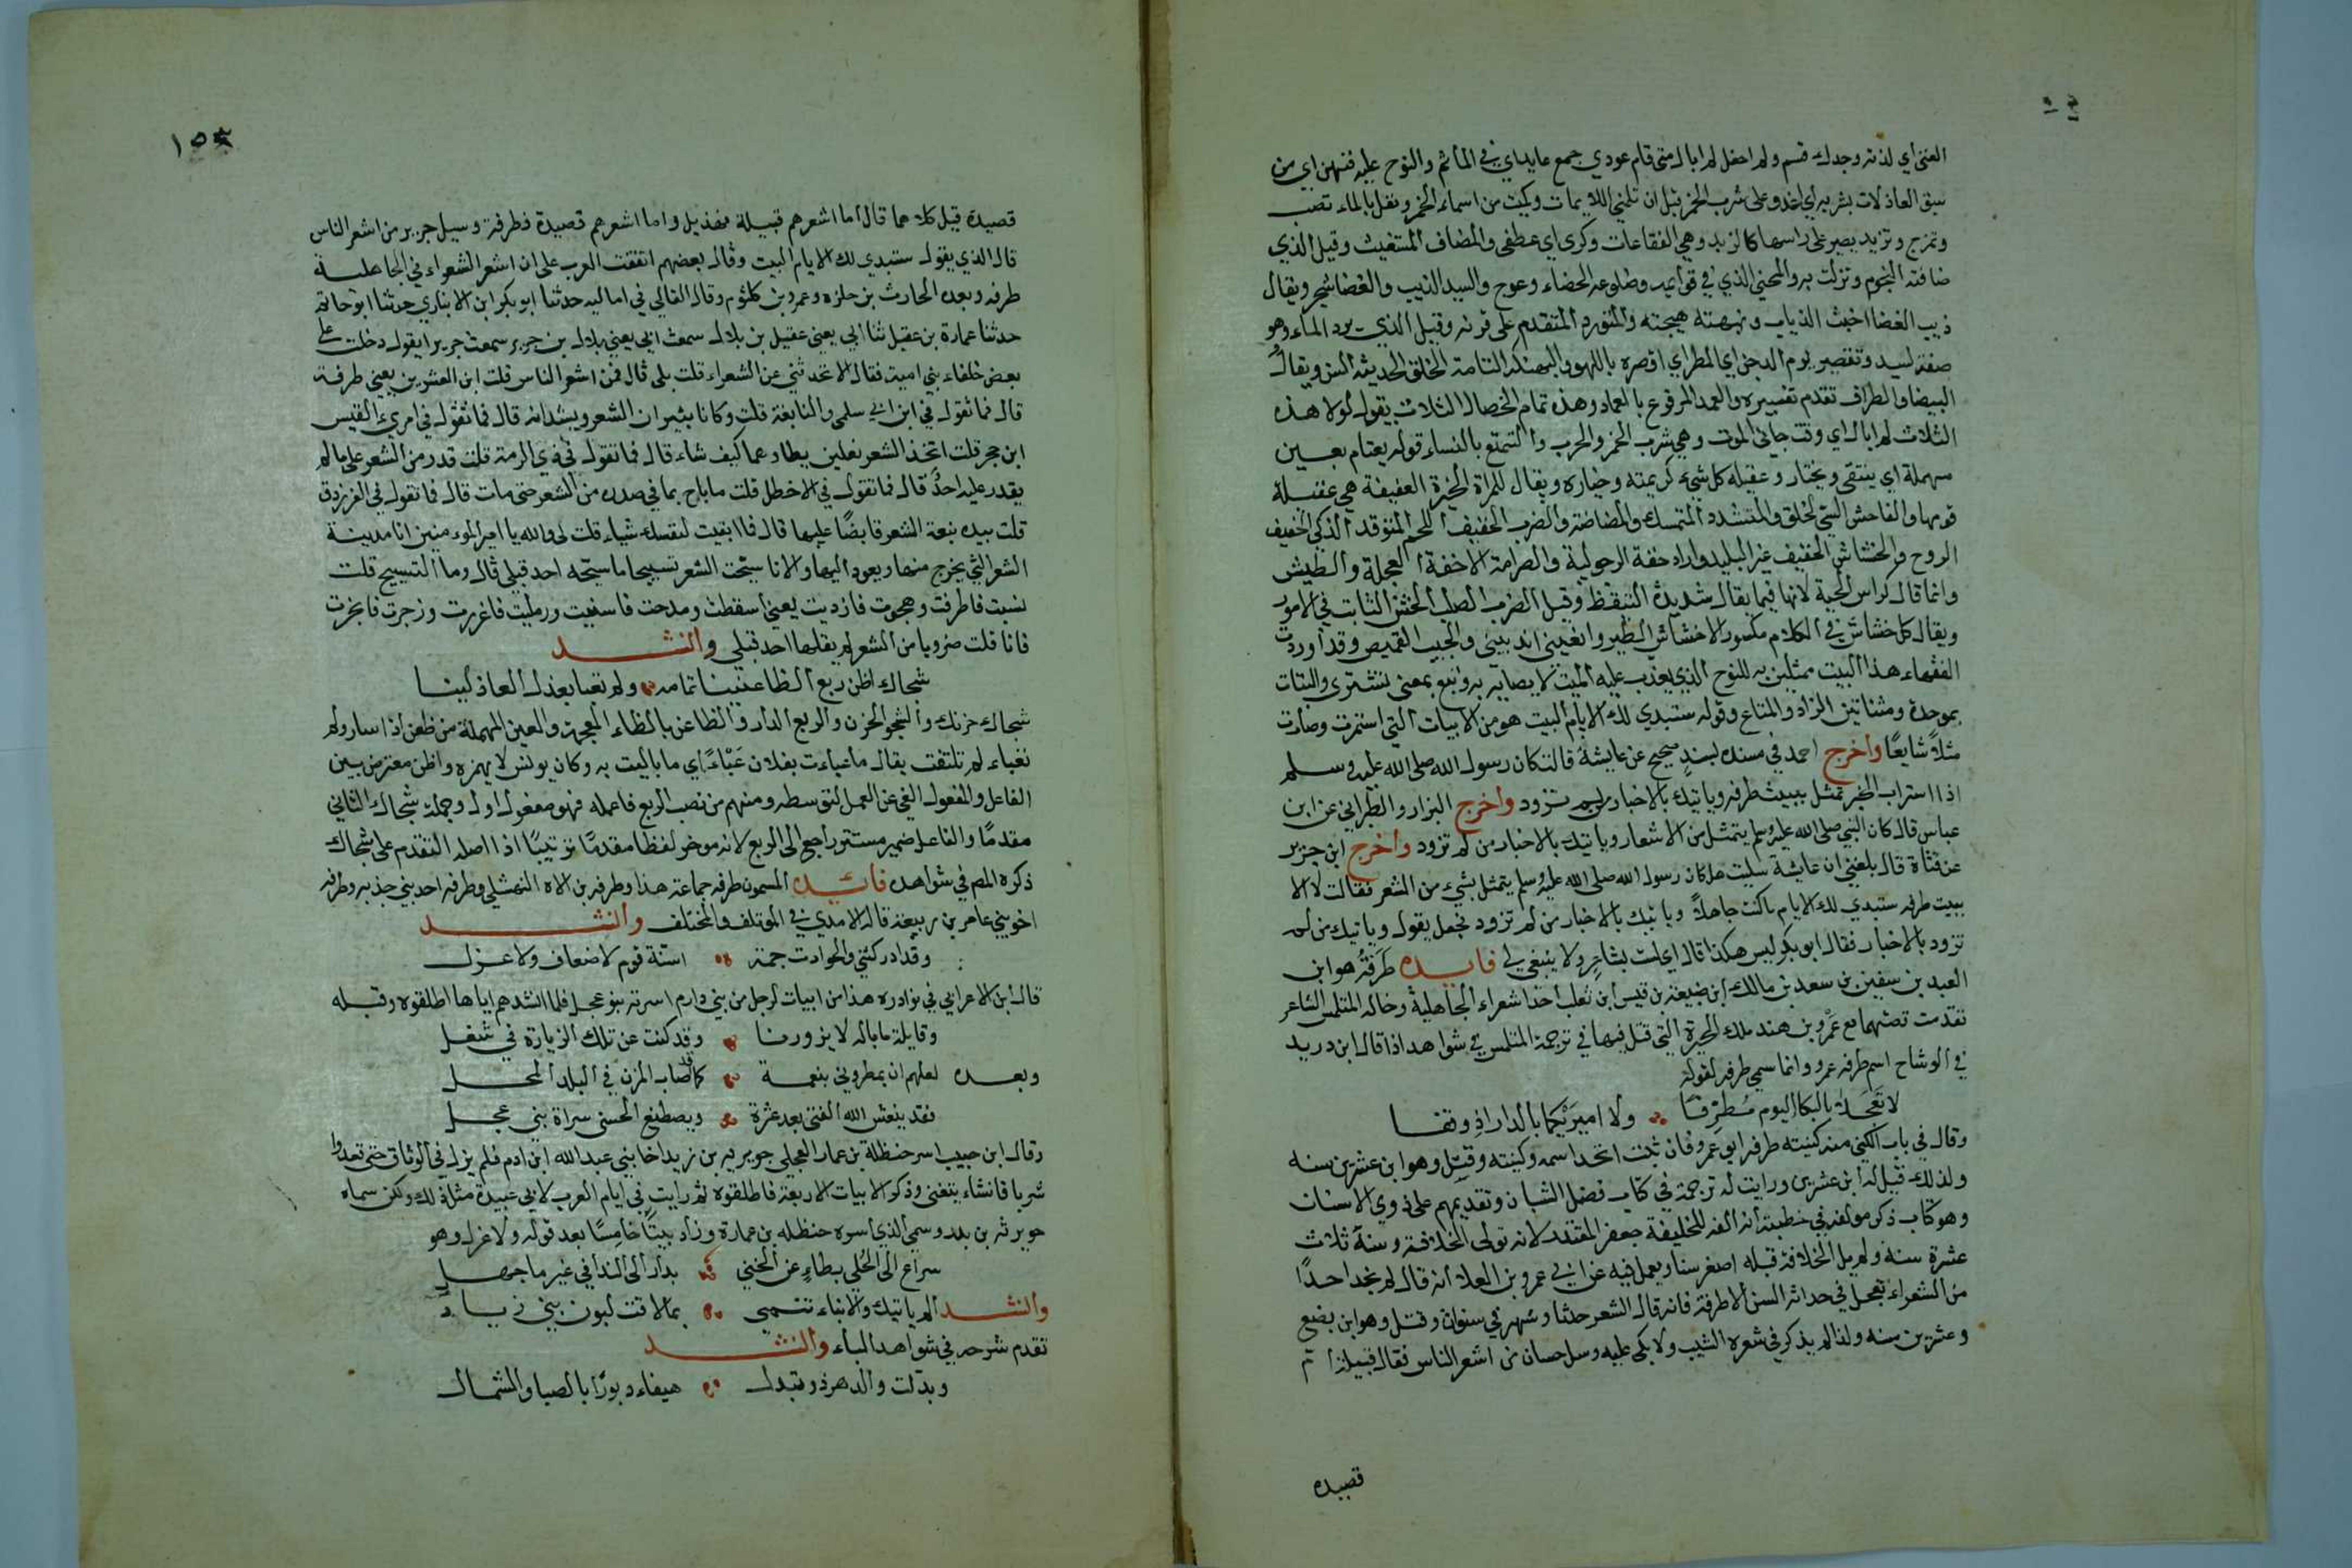 الفتى أي لذته وجدك قسم ولم احفل لم ابال متى قام عودي جمع عايداي في المأثم والنوح عليه فمنهن اي من
سبق العاذلات بشربه أي اغدو على شرب الخمر قبل ان تلمني اللايمات وكميت من اسماء الخمر وتغل بالماء تصب
وتمزج وتزبد يصير على راسها كالزبد وهي الفقاعات وكرى اي عطفى والمضاف المستغيث وقيل الذي
ضافته الهموم ونزلت به والمحنب الذي في قوايمه وضلوعه انحناء وعوج والسيد الذيب والغضا شجر ويقال
ذيب الغضا اخبث الذياب ونبهته هيجته والمتورد المتقدم على قرنه وقيل الذي يرد الماء وهو
صفة لسيد وتقصير يوم الدجن اي المطر اي اقصره باللهو والبهنكة التامة الخلق الحديثة السن ويقال
البيضا والطراف تقدم تفسيره والعمد المرفوع بالعماد وهذه تمام الخصال الثلاث يقول لولا هذه
الثلاث لم ابال اي وقت جاني الموت وهي شرب الخمر والحرب والتمتع بالنساء قوله يعتام بعين
مهملة اي ينتقى ويختار وعقيله كل شيء كريمته وخياره ويقال للمراة الخيرة العفيفة هي عقيلة
قومها والفاحش السيّ الخلق والمتشدد المتمسك والضرب الخفيف اللحم المتوقد الذكي الخفيف
الروح والخشاش الخفيف غير البليد واراد خفة الرجولية والصرامة لا خفة العجلة والطيش
وانما قال كراس الحية لانها فيما يقال شديدة التيقظ وقيل الضرب الصلب الخشن الثابت في الامور
ويقال كل خشاش في الكلام مكسور الا خشاش الطير وانعيني اندبيني والجيب القميص وقد اوردت
الفقهاء هذا البيت ممثلين به للنوح الذي يعذب عليه الميت لايصايه به وتبع بمعنى تشترى والبتات
بموحدة ومثناتين الزاد والمتاع وقوله ستبدي لك الايام البيت هو من الابيات التي استمرت وصارت
مثلاً شايعًا وأخرج احمد في مسنده بسندٍ صحيح عن عايشة قالت كان رسول الله صلى الله عليه وسلم
اذا استراب الخبر تمثل ببيت طرفه وياتيك بالاخبار من لم تزود وأخرج البزار والطبراني عن ابن
عباس قال كان النبي صلى الله عليه وسلم يتمثل من الاشعار وياتيك بالاخبار من لم تزود وأخرج ابن جرير
عن قتاة قال بلغني ان عايشة سيلت هل كان رسول الله صلى الله عليه وسلم يتمثل بشيء من الشعر فقالت لا الا
ببيت طرفه ستبدي لك الايام ما كنت جاهلاً وياتيك بالاخبار من لم تزود فجعل يقول وياتيك من لم
تزود بالاخبار فقال ابو بكر ليس هكذا قال اي لست بشاعرٍ ولا ينبغي لي فايده طَرَفَة هو ابن
العبد بن سفين بن سعد بن مالك ابن ضبيعة بن قيس ابن ثعلب احد اشعراء الجاهلية وخاله المتلمس الشاعر
تقدمت قصتهما مع عَمرو بن هند ملك الحيرة التي قتل فيها في ترجمة المتلمس في شواهد اذا قال ابن دريد
في الوشاح اسم طرفه عمرو وانما سمي طرفه لقوله
لا تَعجَلا بالبكا اليوم مُطرِفَا ولا اميرَيْكما بالدار اذ وقفا
وقال في باب الكنى منه كنيته طرفه ابو عمرو فان ثبت اتحد اسمه وكنيته وقتل وهو ابن عشرين سنه
ولذلك قيل له ابن عشرين ورايت له ترجمة في كتاب فضل الشبان وتقديمهم على ذوي الاسنان
وهو كتاب ذكر مولفه في خطبته أنه الفه للخليفة جعفر المقتدر لانه تولى الخلافة وسنه ثلاث
عشرة سنة ولم يل الخلافة قبله اصغر سنا ويعمل فيه عن ابي عمرو بن العلا أنه قال لم نجد احدًا
من الشعراء يعجل في حداثة السن الا طرفة فانه قال الشعر حدثا وشهر في سنوات وقتل وهو ابن بضع
وعشرين سنه ولذا لم يذكر في شعره الشيب ولا بكى عليه وسل حسان من اشعر الناس فقال قبيلة ام
قصيده
١٥٤
قصيدة قيل كلاهما قال اما اشعرهم قبيلة فهذيل واما اشعرهم قصيدة فطرفة وسيل جرير من اشعر الناس
قال الذي يقول ستبدي لك الايام البيت وقال بعضهم اتفقت العرب على ان اشعر الشعراء في الجاهلية
طرفه وبعده الحارث بن حلزه وعمرو بن كلثوم وقال القالي في اماليه حدثنا ابو بكر ابن الانباري حدثنا ابو حاتم
حدثنا عمارة بن عقيل ثنا ابي يعني عقيل بن بلال سمعت ابي يعني بلال بن جرير سمعت جريرا يقول دخلت على
بعض خلفاء بني امية فقال الا تحدثني عن الشعراء قلت بلى قال فمن اشعر الناس قلت ابن العشرين يعني طرفة
قال فما تقول في ابن ابي سلمى والنابغة قلت وكانا ينيران الشعر ويسديانه قال فما تقول في امرئ القيس
ابن حجر قلت اتخذ الشعر نعلين يطاوهما كيف شاء قال فما تقول في ذي الرمة قلت قدر من الشعر على ما لم
يقدر عليه احدٌ قال فما تقول في الاخطل قلت ما باح بما في صدره من الشعر حتى مات قال فما تقول في الفرزدق
قلت بيده نبعة الشعر قابضًا عليها قال فما ابقيت لنفسك شياء قلت بلى والله يا امير المومنين انا مدينة
الشعر التي يخرج منها ويعود اليها ولانا سبّحت الشعر تسبيحا ما سبّحه احد قبلي قال وما التسبيح قلت
نسبت فاطرفت وهجوت فازديت يعني اسقطت ومدحت فاسنيت ورملت فاغزرت وزجرت فابحرت
فانا قلت ضروبا من الشعر لم يقلها احد قبلي وأنشد
شجاك اظن ربع الظاعنينا تمامه ولم تعبا بعذل العاذلينا
شجاك حزنك والشجو الحزن والربع الدار والظاعن بالظاء المعجمة والعين المهملة من ظعن اذا سار ولم
تعباء لم تلتفت يقال ما عباءت بفلان عَبْاءً اي ما باليت به وكان يونس لا يهمزه واظن معترض بين
الفاعل والمفعول الغي عن العمل لتوسطه ومنهم من نصب الربع فاعمله فهو مفعول اول وجملة شجاك الثاني
مقدمًا والفاعل ضمير مستتر راجع الى الربع لانه موخر لفظا مقدمًا ترتيبًا اذا اصله التقدم على شجاك
ذكره المص في شواهده فائده المسمون طرفه جماعة هذا وطرفه بن الاة النهشلي وطرفه احد بني جذيمه وطرفه
اخو بني عامر بن ربيعة قاله الامدي في الموتلف والمختلف وأنشد
وقد ادركتني والحوادث جمة اسنة قوم لا ضعاف ولا عزل
قال ابن الاعرابي في نوادره هذا من ابيات لرجل من بني دارم اسرته بنو عجل فلما انشدهم اياها اطلقوه وقبله
وقايلة ما باله لا يزورنا وقد كنت عن تلك الزيارة في شغل
وبعده لعلهم ان يمطروني بنعمة كما صاب المزن في البلد المحل
فقد ينعش الله الفتى بعد عثرة ويصطنع الحسنى سراة بني عجل
وقال ابن حبيب اسر حنظلة بن عمار العجلي جويريه بن زيد اخا بني عبد الله ابن ادم فلم يزل في الوثاق حتى قعدوا
شربا فانشاء يتغنى وذكر الابيات الاربعة فاطلقوه ثم رايت في ايام العرب لابي عبيدة مثل ذلك ولكن سماه
حويرثه بن بدر وسمى الذي اسره حنظله بن عمارة وزاد بيتًا خامسًا بعد قوله ولا عزل وهو
سراع الى الجُلى بطاءٍ عن الخنى بدار الى الندا في غير ما جهل
وأنشد ألم ياتيك والانباء تنمى بما لاقت لبون بني زياد
تقدم شرحه في شواهد الباء وأنشد
وبدّلت والدهر ذو تبدل هيفاء دبورًا بالصبا والشمال